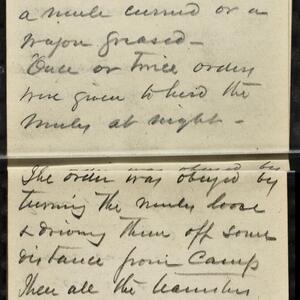 a mule curried or a
wagon greased —
Once or twice orders
were given to herd the
mules at night —
The order was obeyed by
turning the mules loose
& driving them off some
distance from Camp
Then all the teamsters